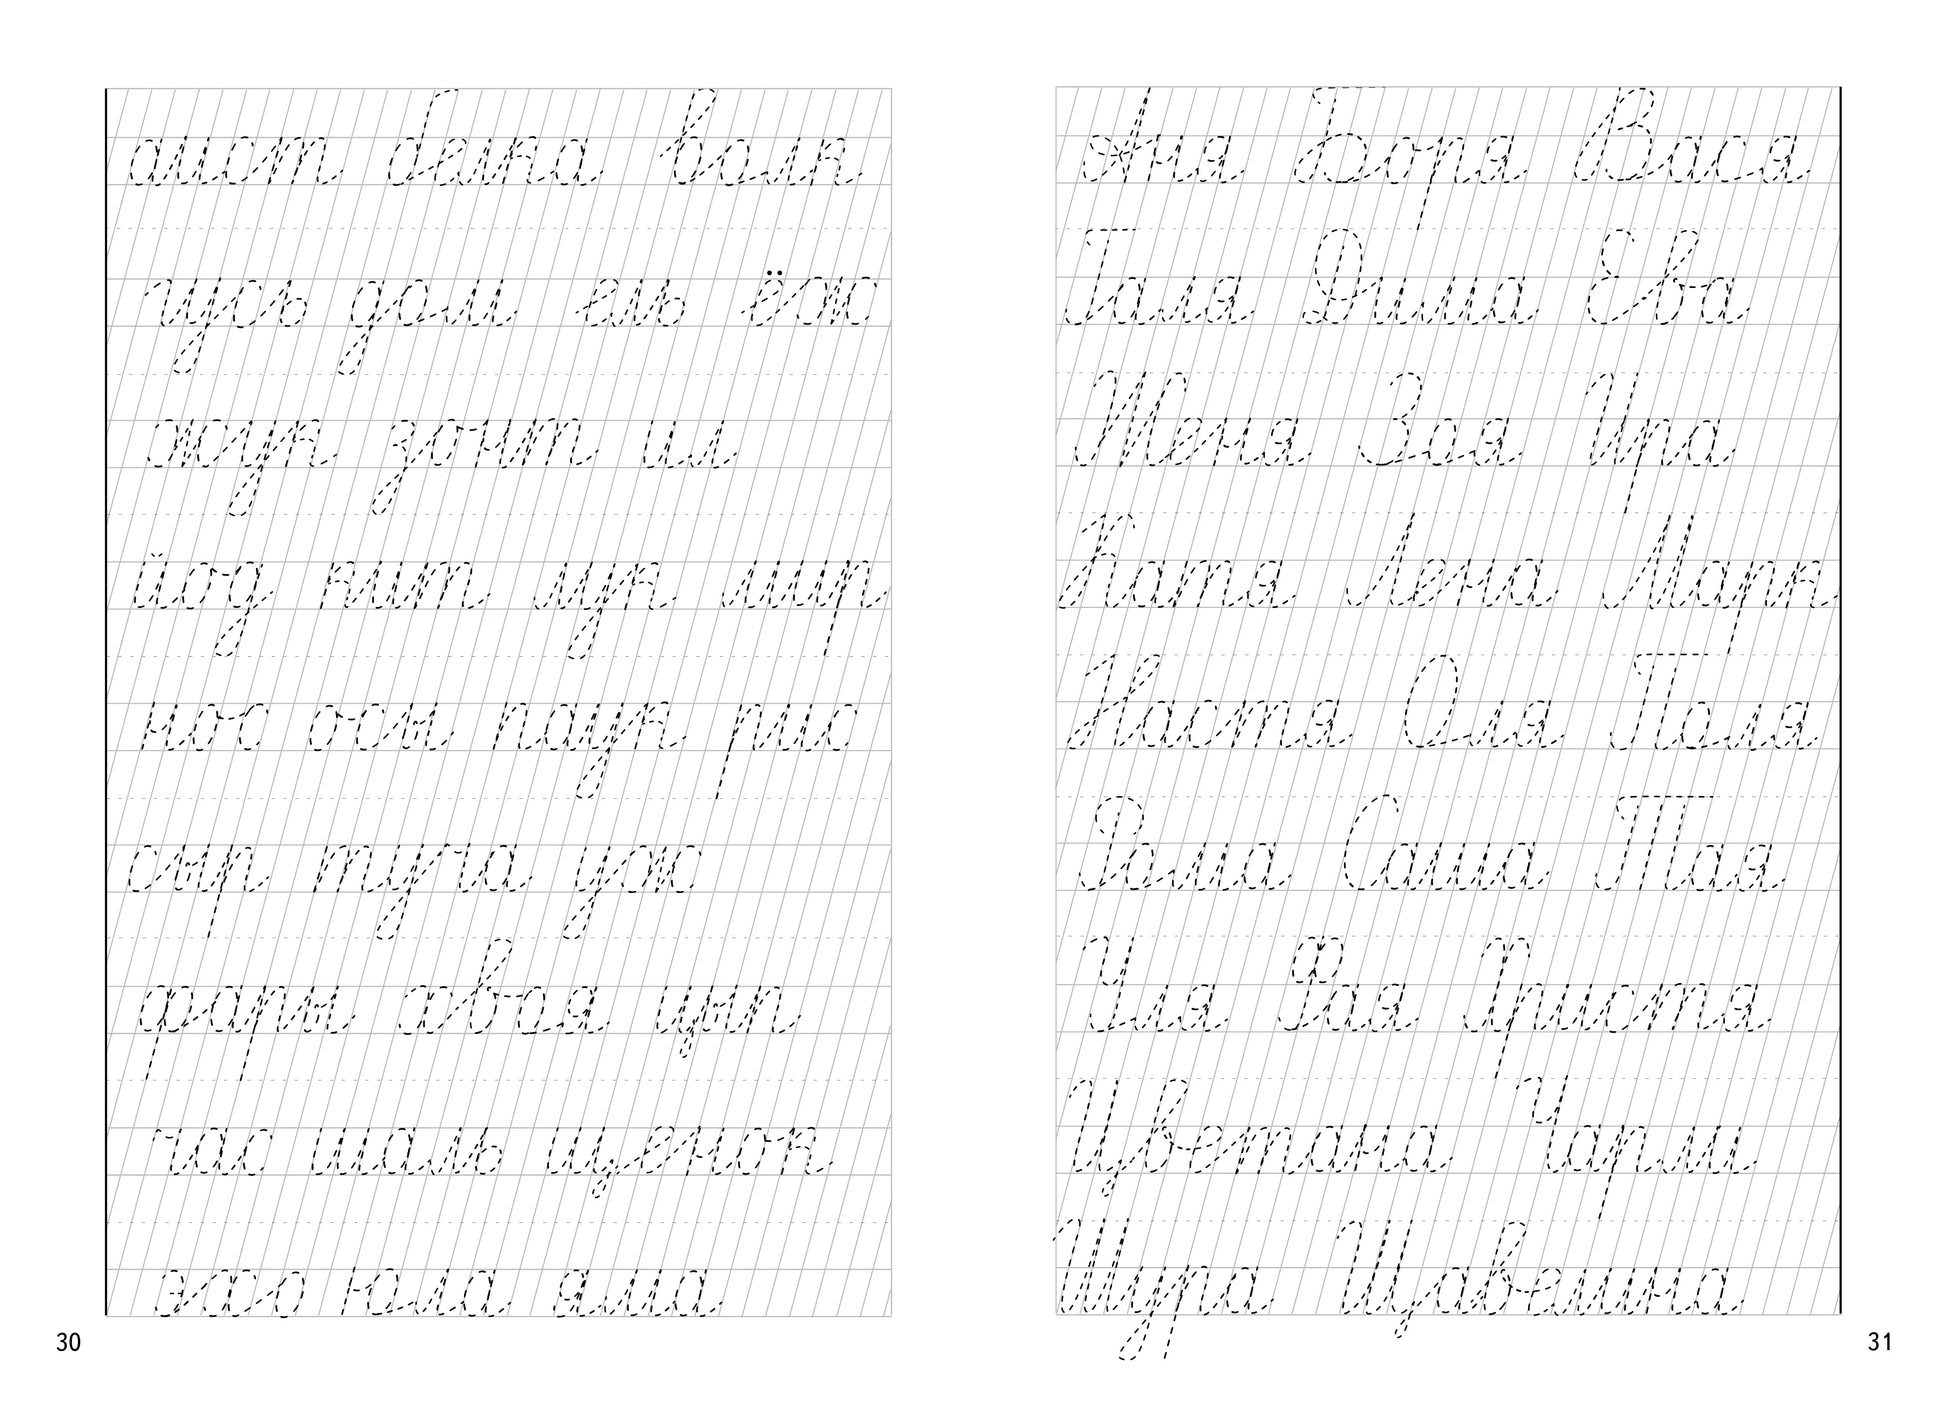 аист белка волк
гусь дом ель ёж
жук зонт ил
йод кит лук мир
нос паук рис
сыр туча уж
хвоя
час шаль щенок
эхо юла яма
30
Аня Боря Вася
Галя Дима Ева
Женя Зоя Ира
Катя Лена Марк
Настя Оля Поля
Рома Саша Тая
Уля Фая Христя
Цветана Чарли
Шура
31